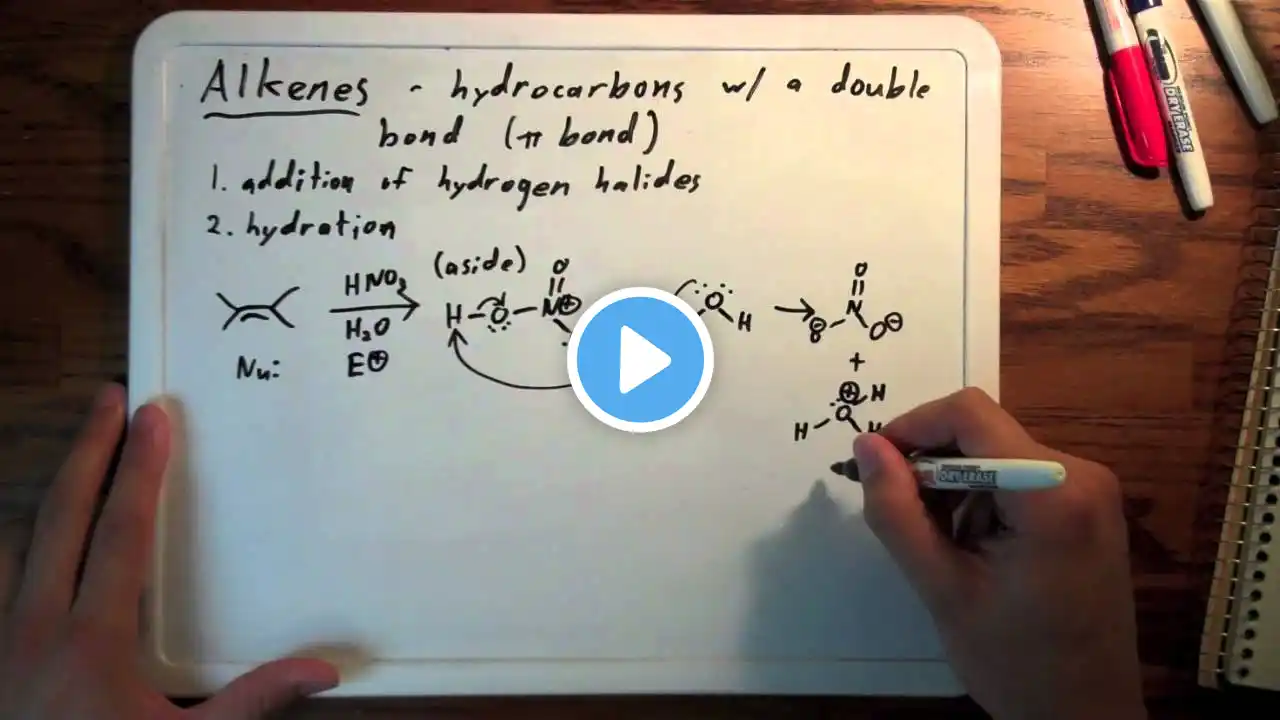 Alkenes - hydrocarbons w/ a double
bond (π bond)
1. addition of hydrogen halides
2. hydration
(aside)
HNO₃
H₂O
Nu: E⊕
O
H-O-N⊕
O
H
→
O
N
O⊖ O⊖
+
⊕ H
H O H
DRY ERASE
DRY ERASE